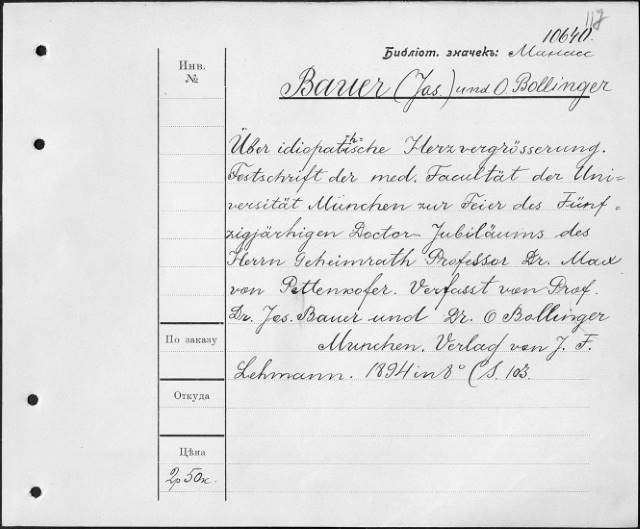 117
10640.
Библіот. значекъ: Манасс
Инв.
№
Bauer (Jos.) und O. Bollinger
Über idiopathische Herzvergrösserung.
Festschrift der med. Facultät der Uni-
versität München zur Feier des Fünf-
zigjärhigen Doctor-Jubiläums des
Herrn Geheimrath Professor Dr. Max
von Pettenkofer. Verfasst von Prof.
Dr. Jos. Bauer und Dr. O Bollinger
Munchen. Verlag von J. F.
Lehmann. 1894 in 8° (S. 103.
По заказу
Откуда
Цѣна
2р 50к.